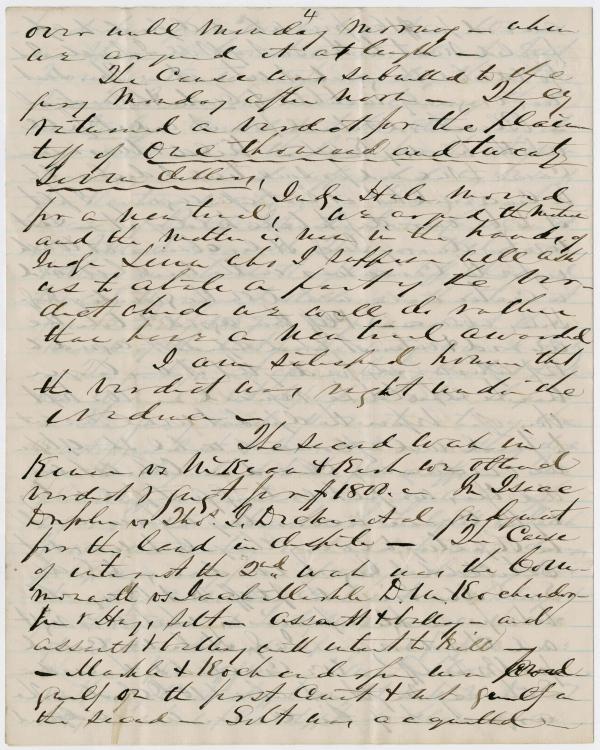 4
over until Monday morning – when
we argued it at length –
The Cause was submitted to the
jury Monday after noon – They
returned a verdict for the plain
tiff of One thousand and twenty
Seven dollars,
Judge Hale moved
for a new trial, we argued the motion
and the matter is now in the hands of
Judge Linn who I suppose will ask
us to abate a part of the ver-
dict and we will do rather
than have a new trial awarded
I am satisfied however that
the verdict was right under the
evidence –
The second week in
vs & we obtained
verdict & for $1800. In Isaac
vs Thos. J. et al judgment
for the land in dispute – The Cause
of interest the 2nd week was the Com
monwealth vs Jacob D. W.
& assault & battery – and
assault & battery with intent to Kill –
– & were found
guilty on the first Count & not guilty on
the second – was acquitted –